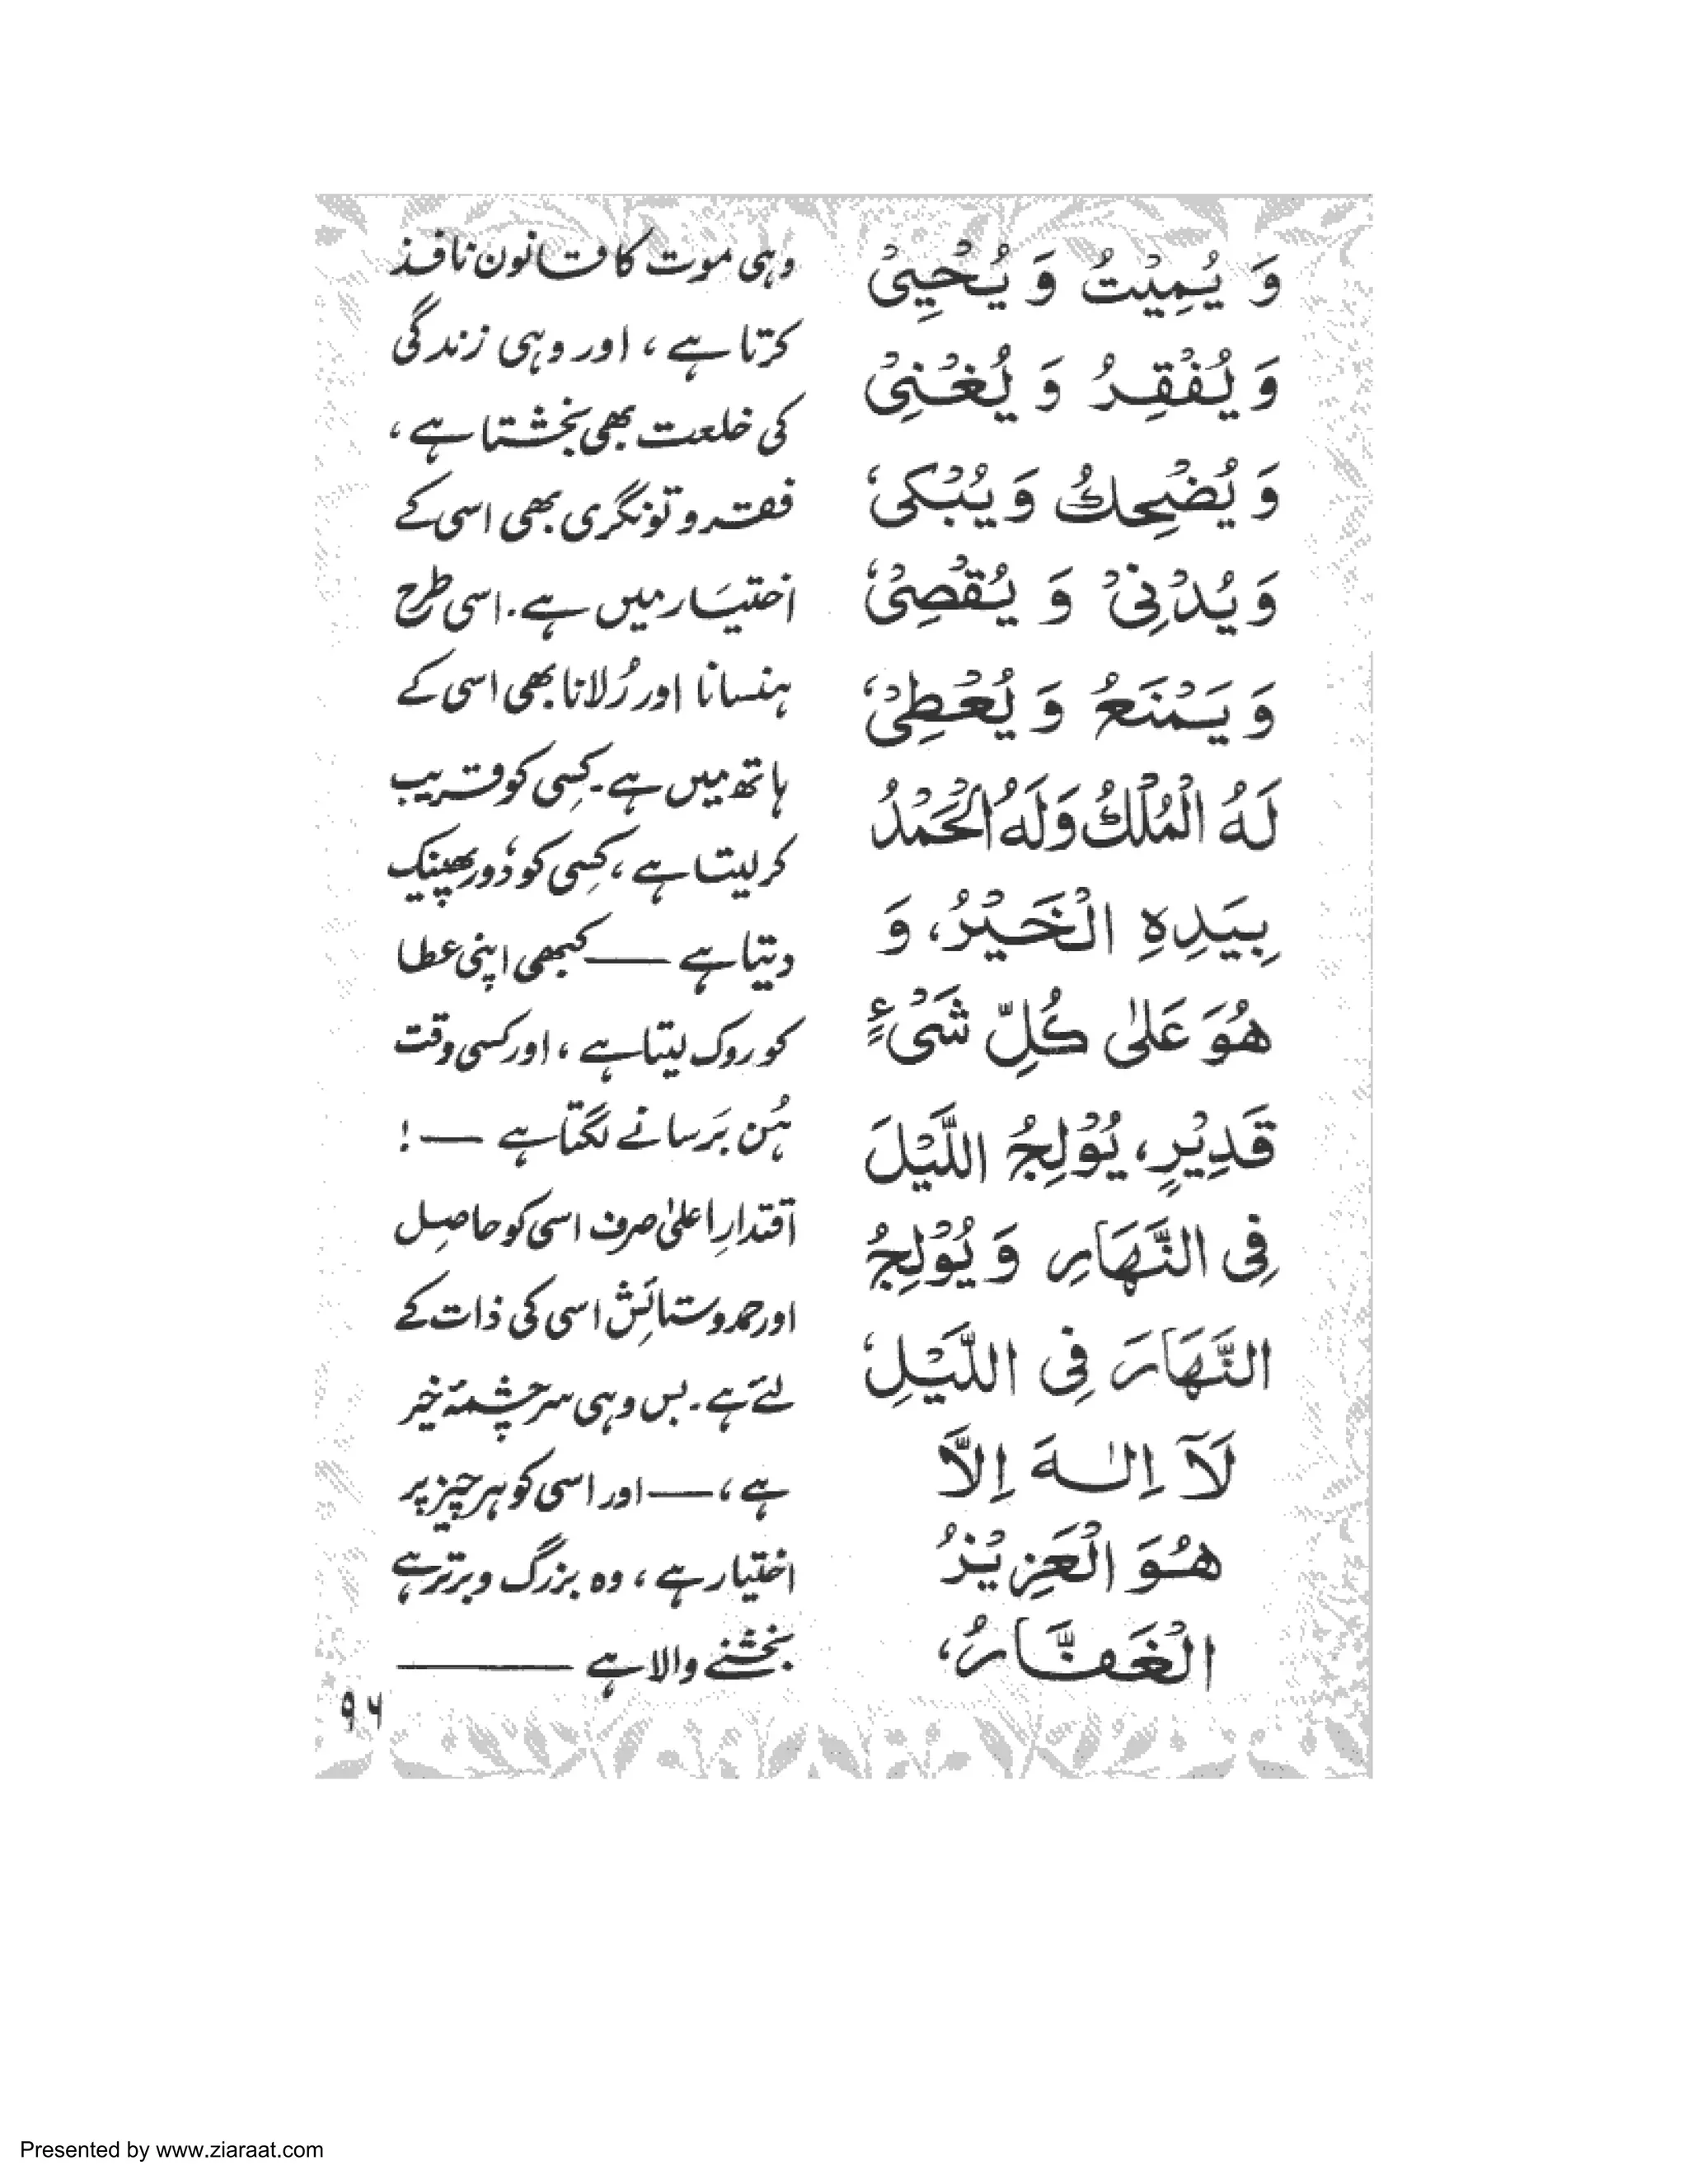 وَ يُمِيْتُ وَ يُحْيِىْ
وَ يُفْقِرُ وَ يُغْنِىْ
وَ يُضْحِكُ وَ يُبْكِىْ،
وَ يُدْنِىْ وَ يُقْصِىْ،
وَ يَمْنَعُ وَ يُعْطِىْ،
لَهُ الْمُلْكُ وَلَهُ الْحَمْدُ
بِيَدِهِ الْخَيْرُ، وَ
هُوَ عَلٰى كُلِّ شَىْءٍ
قَدِيْرٍ، يُوْلِجُ اللَّيْلَ
فِى النَّهَارِ وَ يُوْلِجُ
النَّهَارَ فِى اللَّيْلِ،
لَآ اِلٰهَ اِلَّا
هُوَ الْعَزِيْزُ
الْغَفَّارُ،
وہی موت کا قانون نافذ
کرتا ہے، اور وہی زندگی
کی خلعت بھی بخشتا ہے،
فقر و تونگری بھی اسی کے
اختیَار میں ہے۔ اسی طرح
ہنسانا اور رُلانا بھی اسی کے
ہاتھ میں ہے۔ کِسی کو قریب
کر لیتا ہے، کِسی کو دُور پھینک
دیتا ہے — کبھی اپنی عطا
کو روک لیتا ہے، اور کسی وقت
ہُن بَرسانے لگتا ہے — !
اقتدارِ اعلیٰ صرف اسی کو حاصِل
اور حمد و ستائِش اسی کی ذات کے
لئے ہے۔ بس وہی سرچشمۂ خیر
ہے، — اور اسی کو ہر چیز پر
اختیار ہے، وہ بزرگ و برتر ہے
بخشنے والا ہے —
۹۶
Presented by www.ziaraat.com